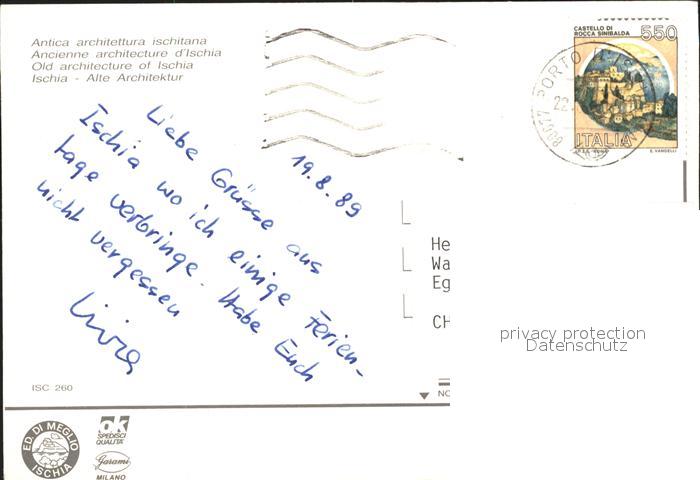 Antica architettura ischitana
Ancienne architecture d'Ischia
Old architecture of Ischia
Ischia - Alte Architektur
CASTELLO DI
ROCCA SINIBALDA
550
ITALIA
E. VANGELLI
80077 PORTO
22.
19.8.89
Liebe Grüsse aus
Ischia wo ich einige Ferien-
tage verbringe. Habe Euch
nicht vergessen
Livia
He
Wa
Eg
CH
privacy protection
Datenschutz
ISC 260
NO
ED. DI MEGLIO
ISCHIA
ok
SPEDISCI
QUALITA'
Garami
MILANO